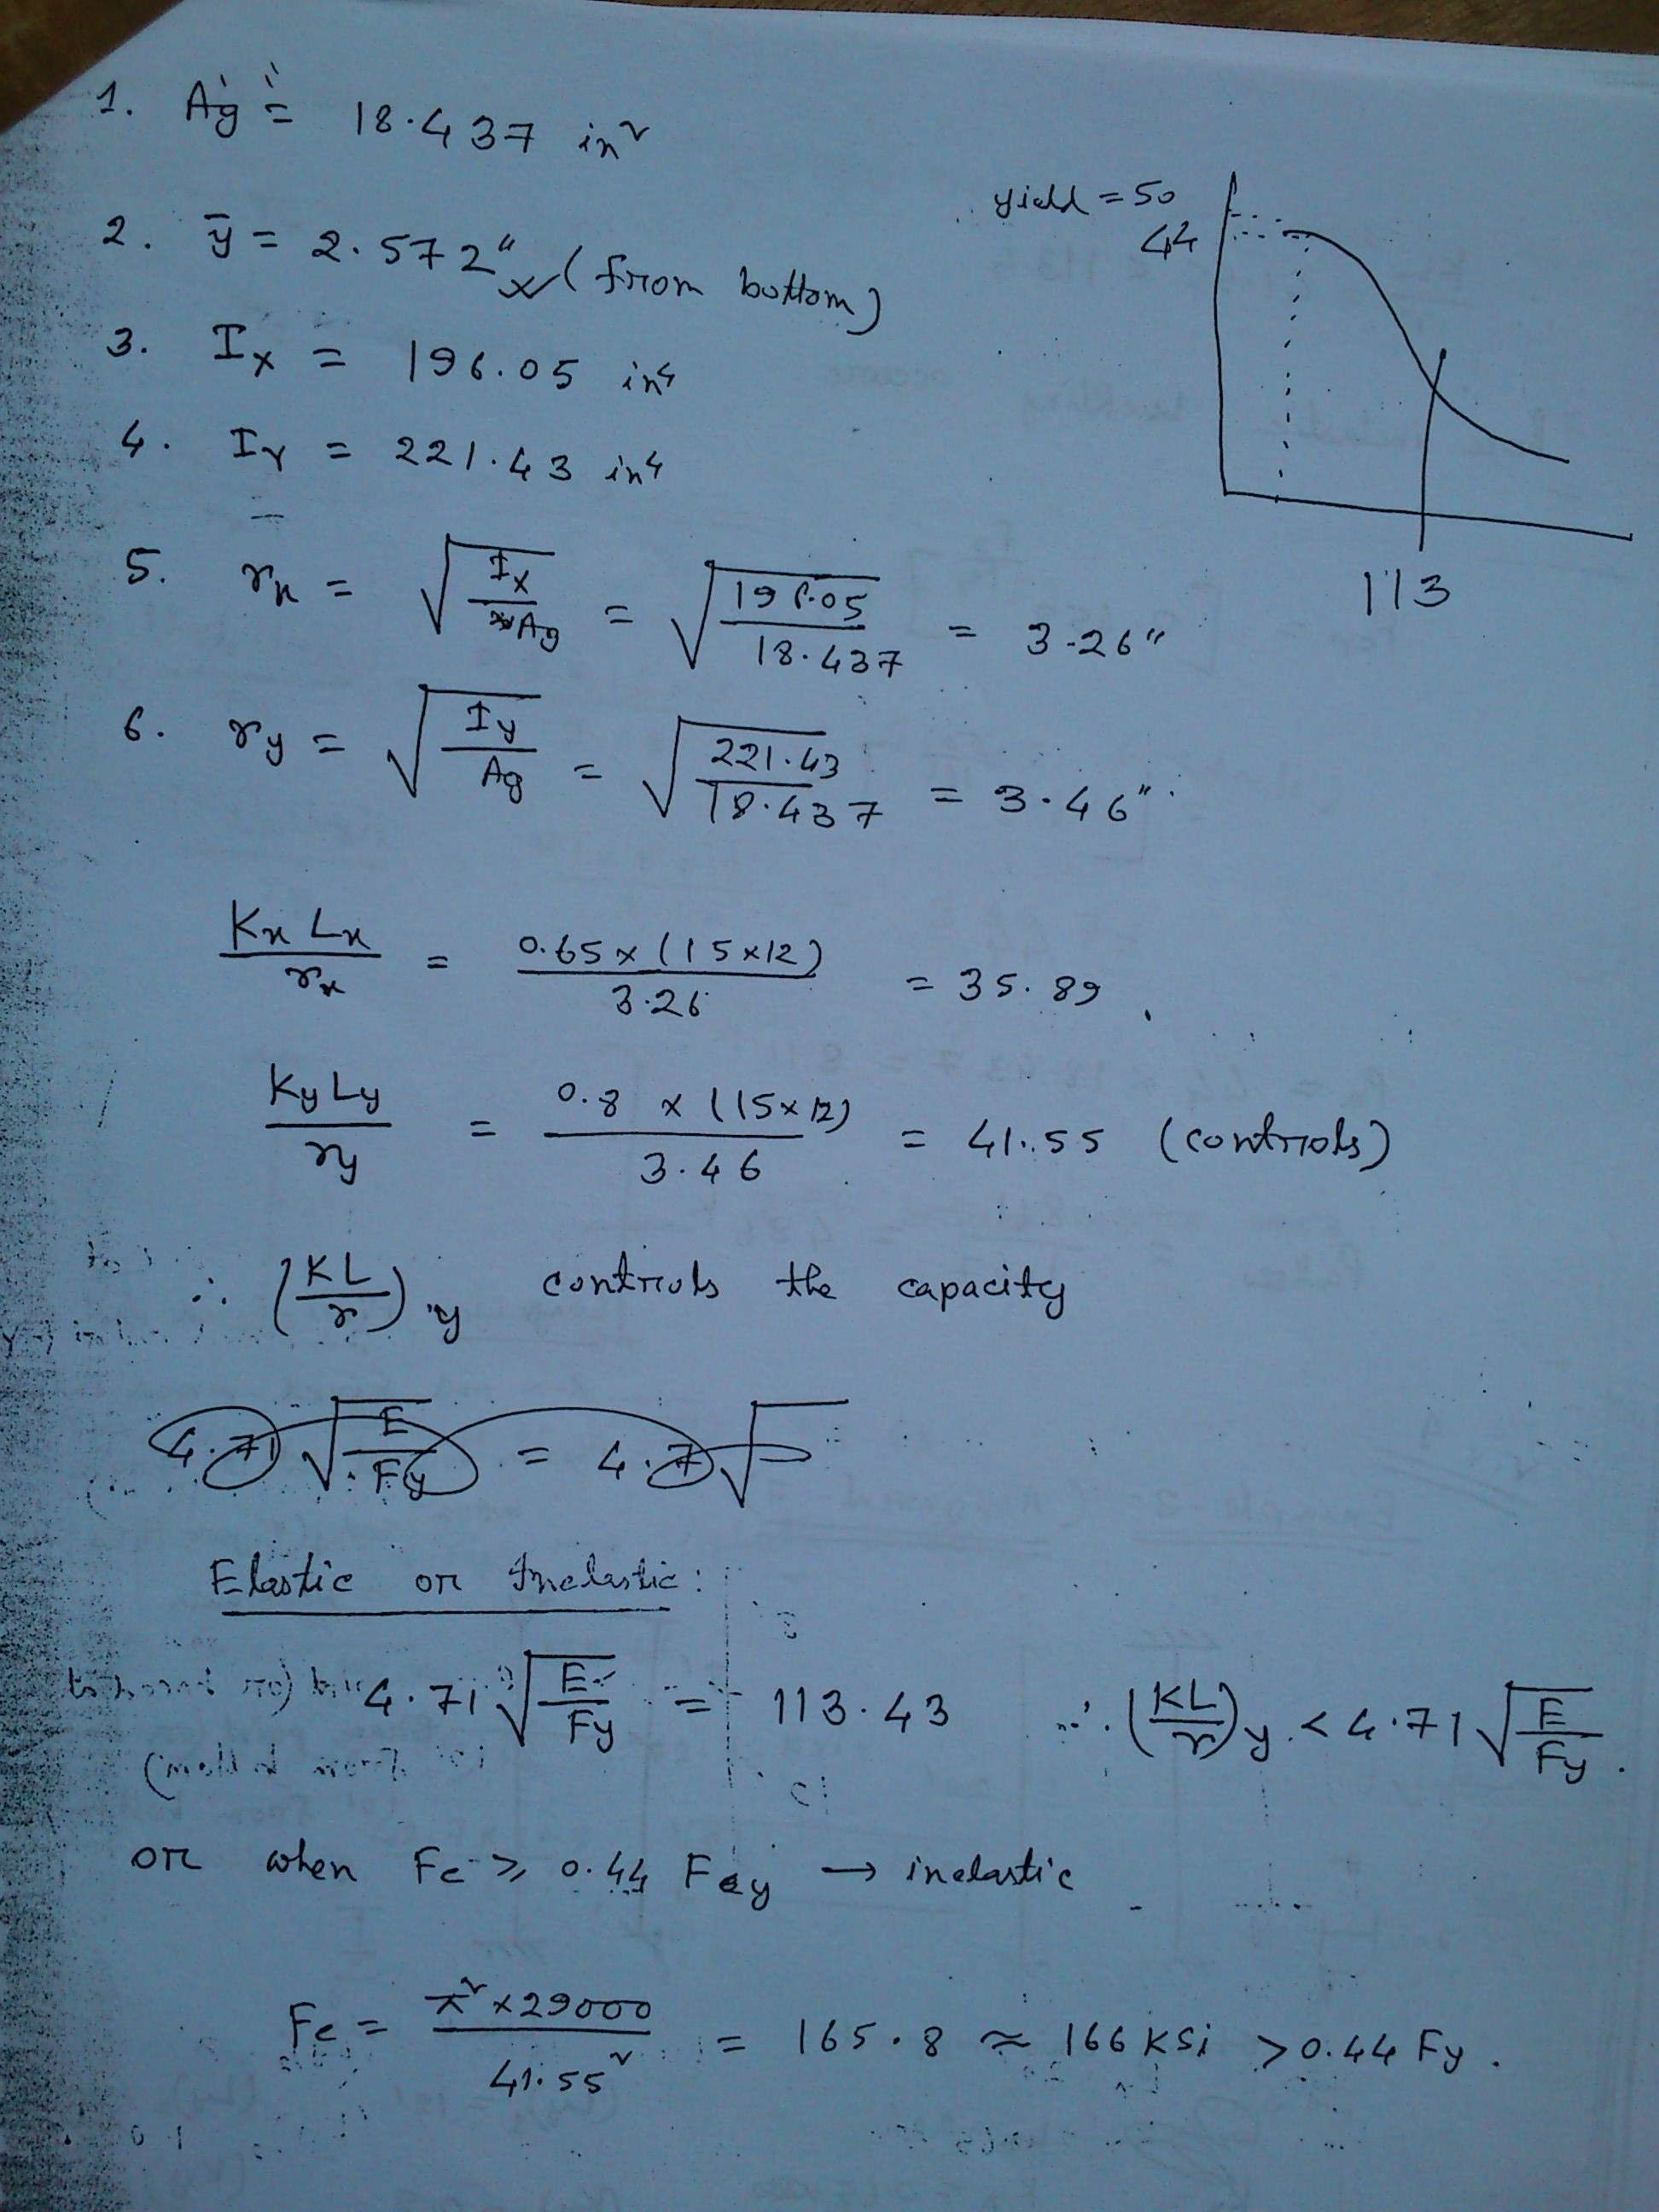 1. Ag = 18.437 in²
yield = 50
44
2. ȳ = 2.572" (from bottom)
3. Ix = 196.05 in⁴
4. IY = 221.43 in⁴
113
5. rx = √(Ix/Ag) = √(196.05/18.437) = 3.26"
6. ry = √(Iy/Ag) = √(221.43/18.437) = 3.46"
Kx Lx / rx = 0.65 x (15x12) / 3.26 = 35.89
Ky Ly / ry = 0.8 x (15x12) / 3.46 = 41.55 (controls)
∴ (KL/r)y controls the capacity
4.71 √(E/Fy) = 4.7 √
Elastic or Inelastic:
4.71 √(E/Fy) = 113.43 ∴ (KL/r)y < 4.71 √(E/Fy).
or when Fe ≥ 0.44 Fy → inelastic
Fe = π² x 29000 / 41.55² = 165.8 ≈ 166 KSi > 0.44 Fy.